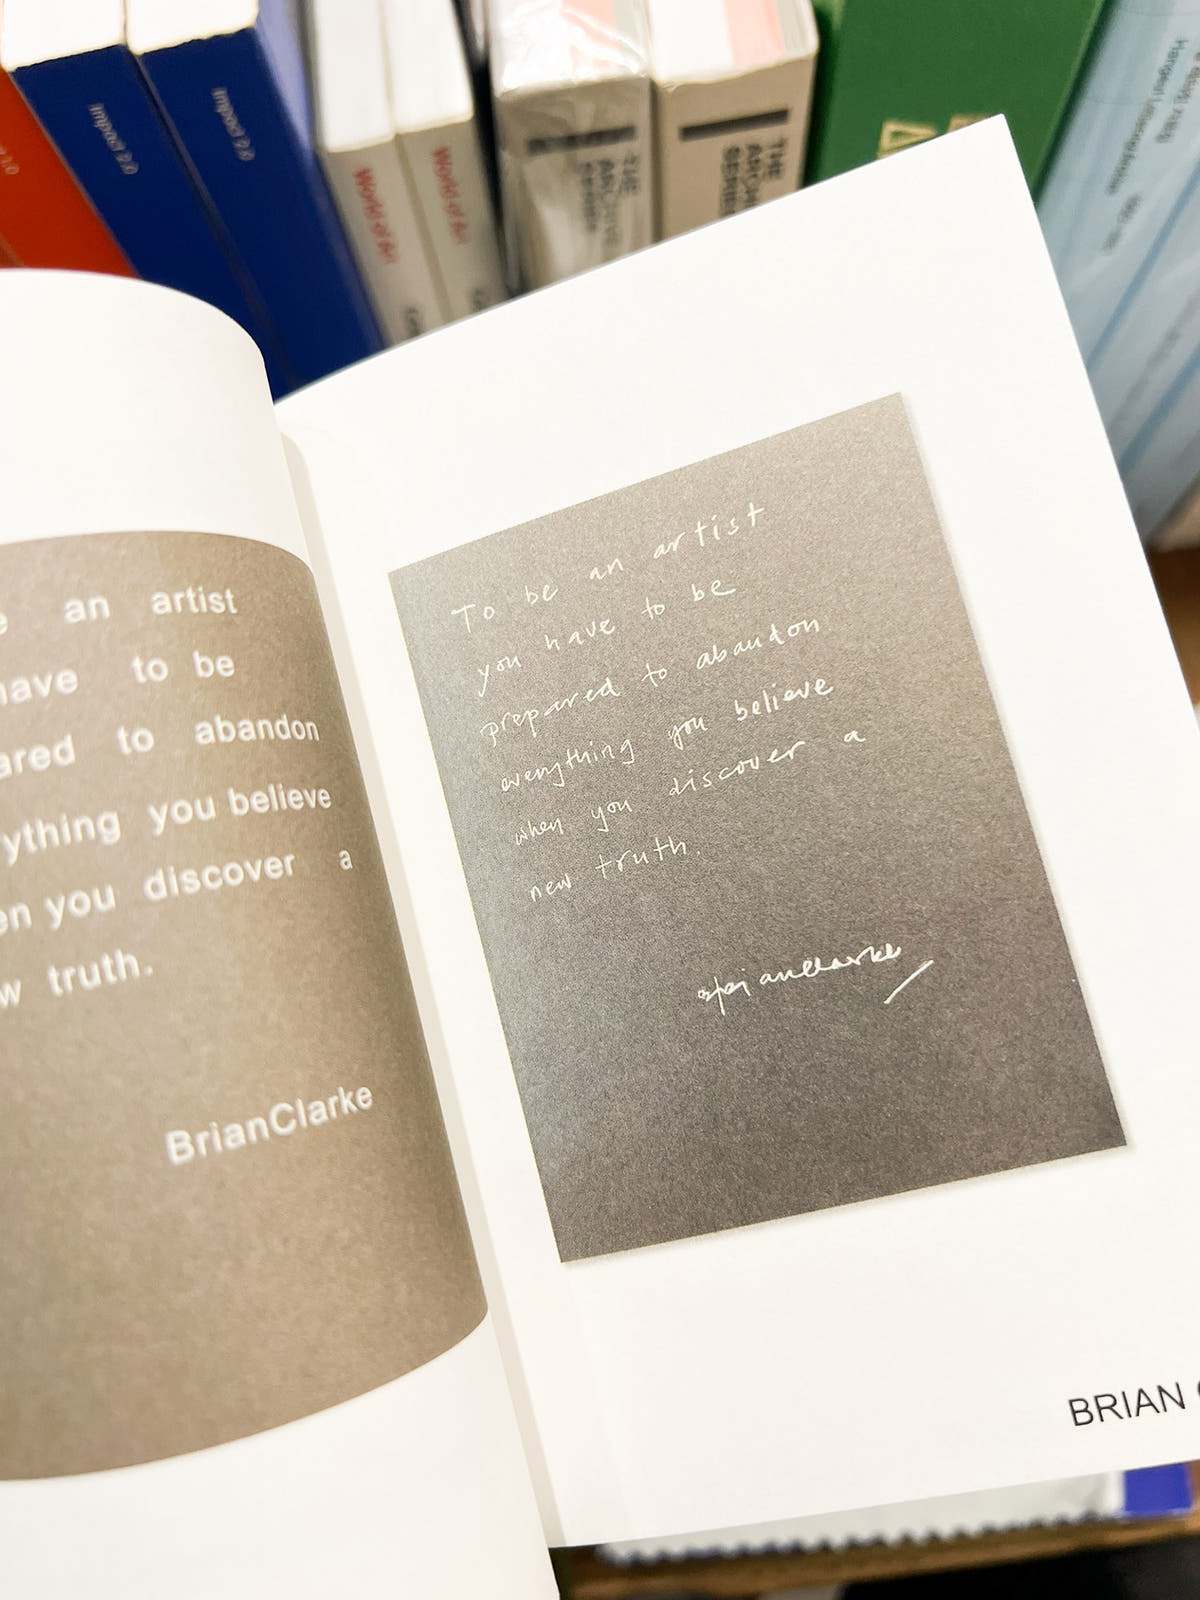 Impact 2.0
Impact 2.0
World of Art
World of Art
THE
ARCHIVE
SERIES
THE
ARCHIVE
SERIES
an artist
have to be
ared to abandon
ything you believe
en you discover a
w truth.
BrianClarke
To be an artist
you have to be
prepared to abandon
everything you believe
when you discover a
new truth.
brianclarke
BRIAN